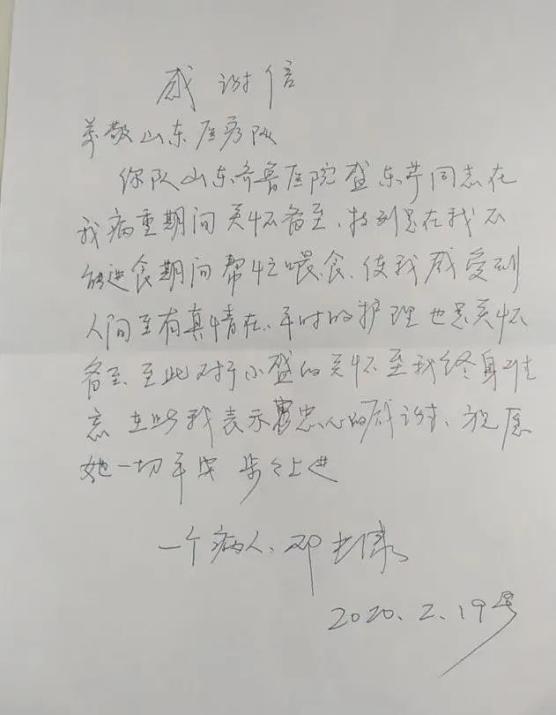 感谢信
尊敬山东医疗队
你队山东齐鲁医院盛东芹同志在
我病重期间关怀备至、特别是在我不
能进食期间帮忙喂食、使我感受到
人间至有真情在、平时的护理也是关怀
备至、至此对于小盛的关怀至我终身难
忘 在此我表示衷忠心的感谢、祝愿
她一切平安 步步上进
一个病人、邓
2020.2.19号